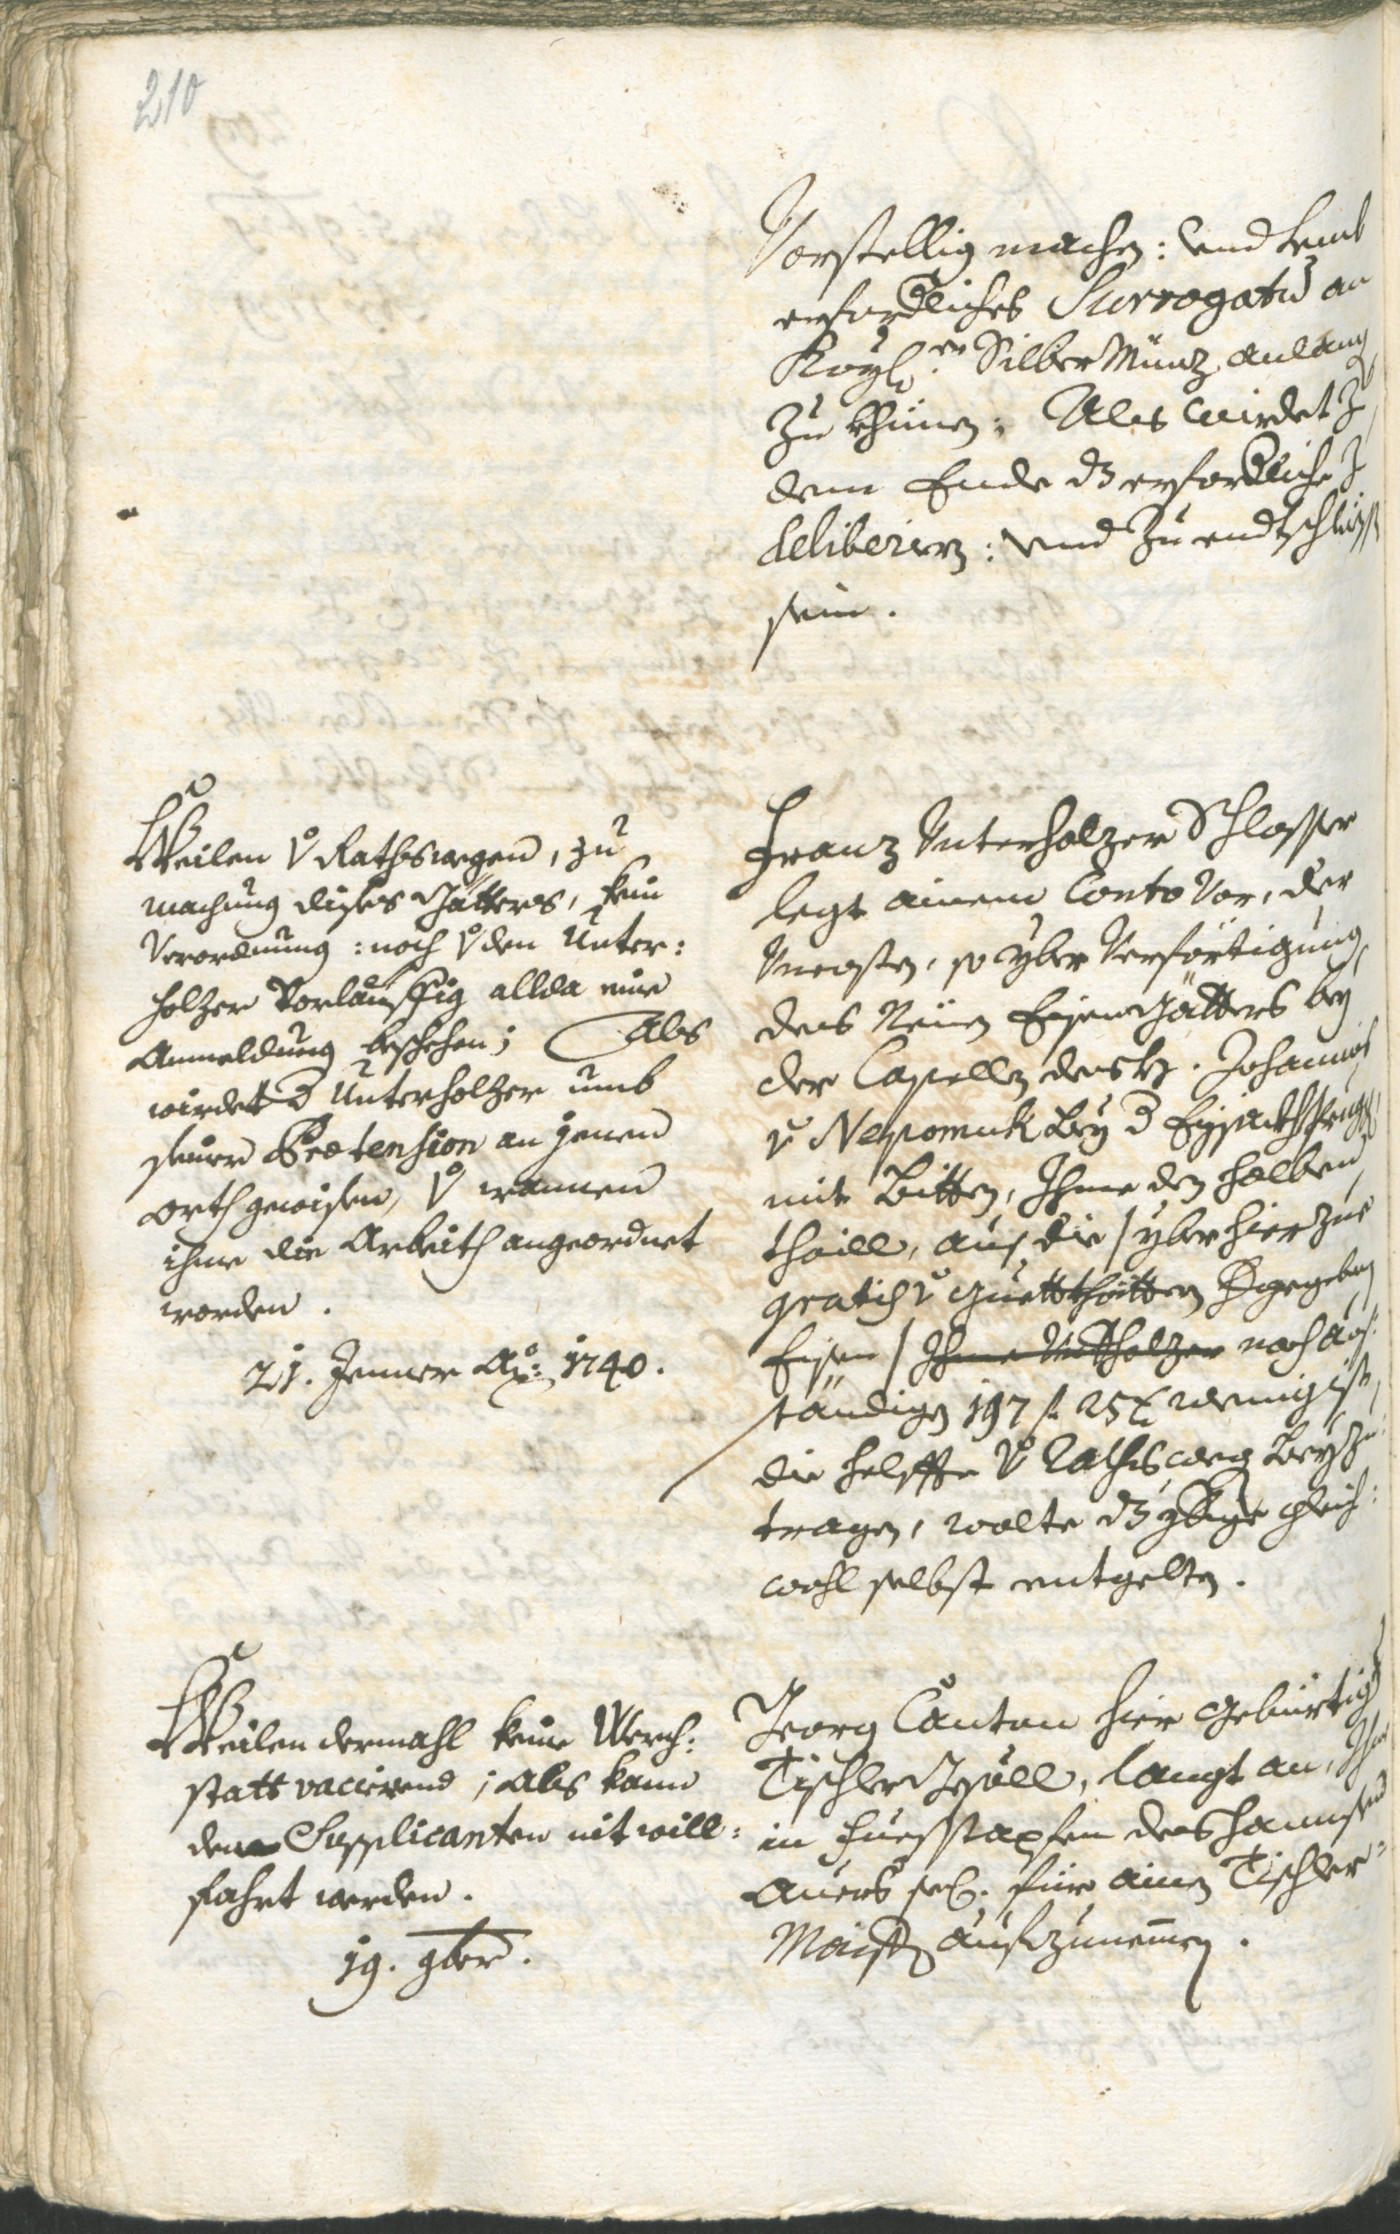 210
Vorstellig machen: vnd
erforderliches Surrogatum an
Kayl:er Silber Münz, anlang
Zu khünen: Als wirdet Z
dem Ende dz erforderliche Z
deliberiern: vnd Zu endtschlüss
sein.
Weilen v Rathswegen, zu
machung dises Gätters, kein
Verordnung: noch v den Unter:
holzer Vorläuffig allda eine
Anmeldung beschehen; Als
wirdet d Unterholzer umb
seiner Praetension an jenen
orth gewisen, v wannen
ihme die Arbeith angeordnet
worden.
21. Jenner Ao: 1740.
Franz Unterholzer Schlosser
legt ainen Conto Vor, der
Vncosten, so yber Verförtigung
des Neuen Eisen Gätters bey
der Capellen des H. Johannis
v Nepomuk bey d Eysackhprugg
mit Bitten, Ihme den halben
thaill, auf die / yber hierzue
gratis v Guettthättern hergegeben
Eisen / Ihme Unterholzer noch aus:
ständigen 197 f 25 x wenigist
die helffte v Rathswegen beyzu:
tragen, wolte dz ybrige gleich:
wohl selbst entgelten.
Weilen dermahl keine Werch:
statt vacierend; Als kann
dem Supplicanten nit will:
fahrt werden.
19. 9ber.
Georg Canton hier gebürtig
Tischler Gsöll, langt an, Ihn
in fuesstapfen des Hannsen
Auers sel. für ainen Tischler=
Maister aufzunemmen.